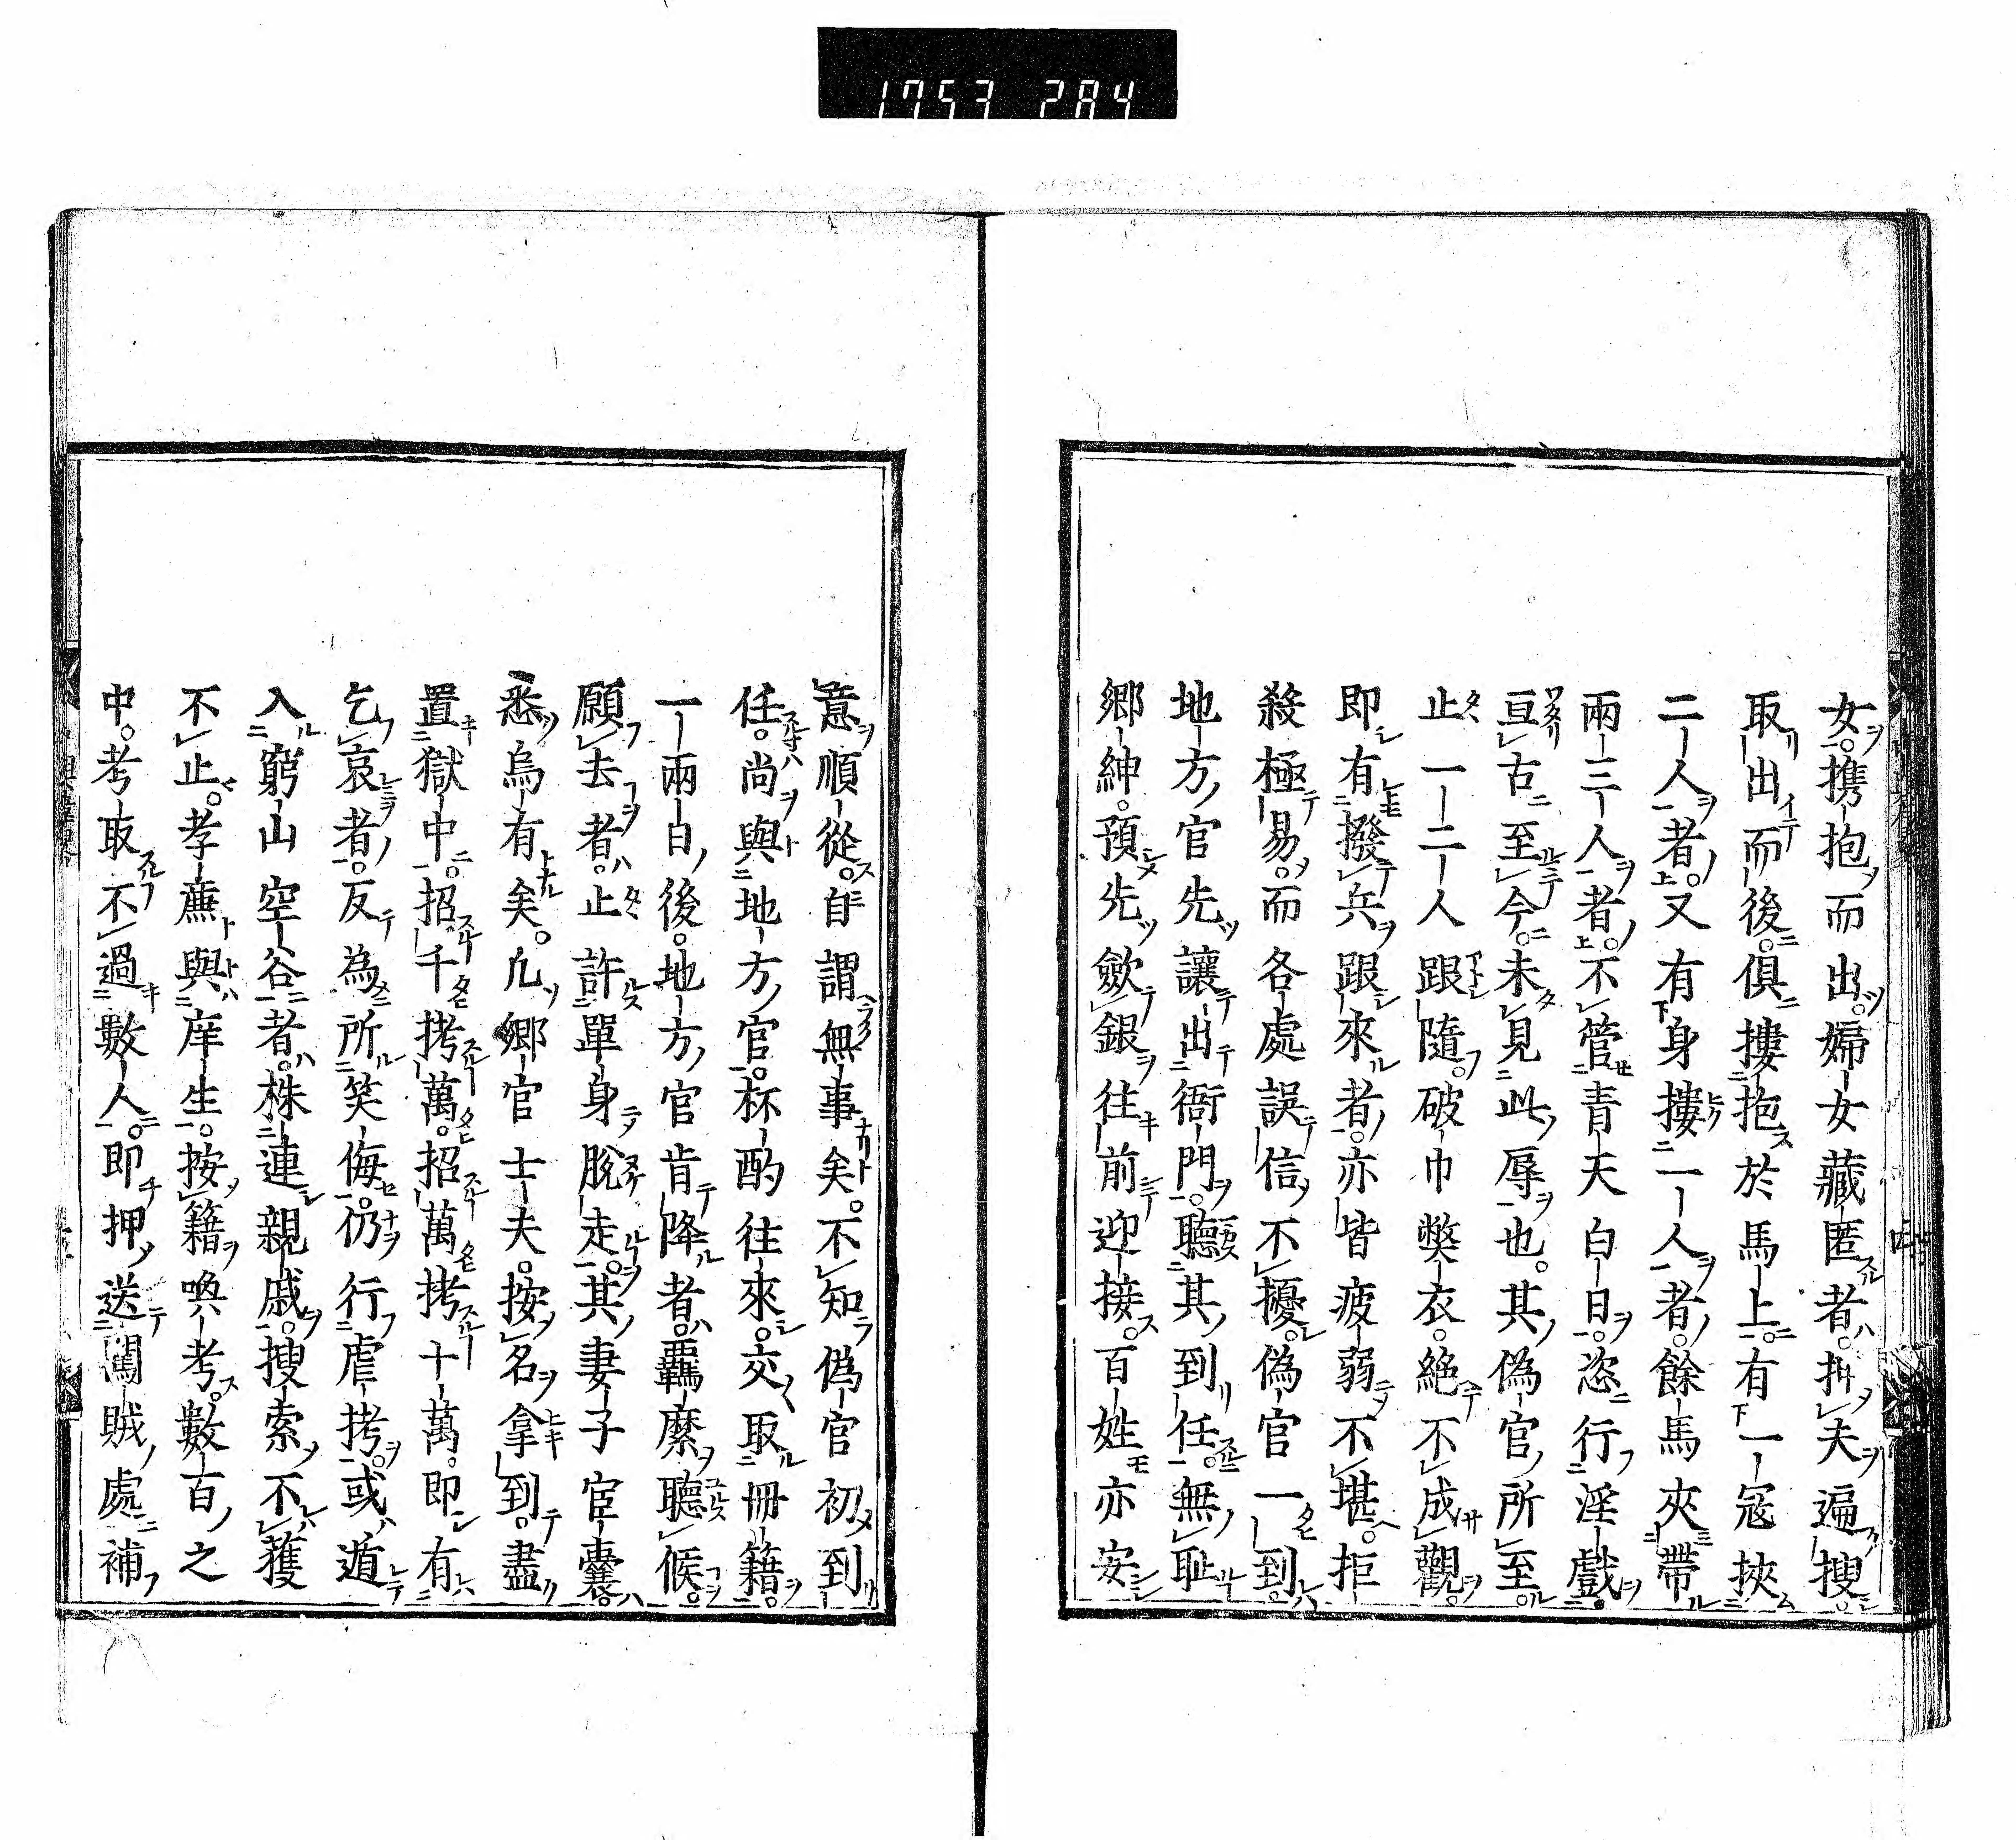 1753 284
女。攜抱而出。婦女藏匿者。拚夫遍搜。
取出而後。俱摟抱於馬上。有一寇挾
二人者。又有身摟一人者。餘馬夾帶
兩三人者。不管青天白日。恣行淫戲。
亘古至今。未見此辱也。其偽官所至。
止一二人跟隨。破巾獘衣。絕不成觀。
即有撥兵跟來者。亦皆疲弱不堪。拒
殺極易。而各處誤信。不擾。偽官一到。
地方官先讓出衙門。聽其到任。無恥
鄉紳。預先斂銀往前迎接。百姓亦安
意順從。自謂無事矣。不知偽官初到
任。尚與地方官。杯酌往來。交取冊籍。
一兩日後。地方官肯降者。羈縻聽候。
願去者。止許單身脫走。其妻子宦囊。
悉烏有矣。凢鄉官士夫。按名拿到。盡
置獄中。招千拷萬。招萬拷十萬。即有
乞哀者。反為所笑侮。仍行虐拷。或遁
入窮山空谷者。株連親戚。搜索不獲
不止。孝亷與庠生。按籍喚考。數百之
中。考取不過數人。即押送闖賊處補